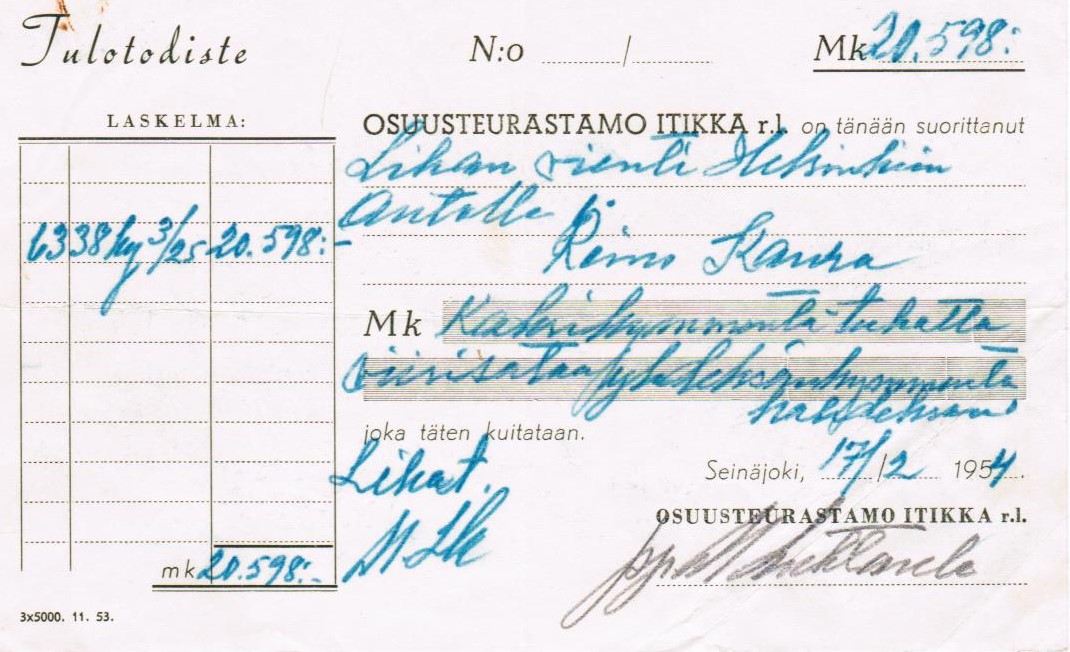 Tulotodiste N:o / Mk 20.598:
LASKELMA:
OSUUSTEURASTAMO ITIKKA r.l. on tänään suorittanut
Lihan vienti Helsinkiin
Autolla
6338 kg 3/25 20.598:-
Reino Kaura
Mk Kaksikymmentä tuhatta
viisisataa yhdeksänkymmentä
kahdeksan
joka täten kuitataan.
Lihat.
Seinäjoki, 17/2 1954.
OSUUSTEURASTAMO ITIKKA r.l.
mk 20.598:-
3x5000. 11. 53.